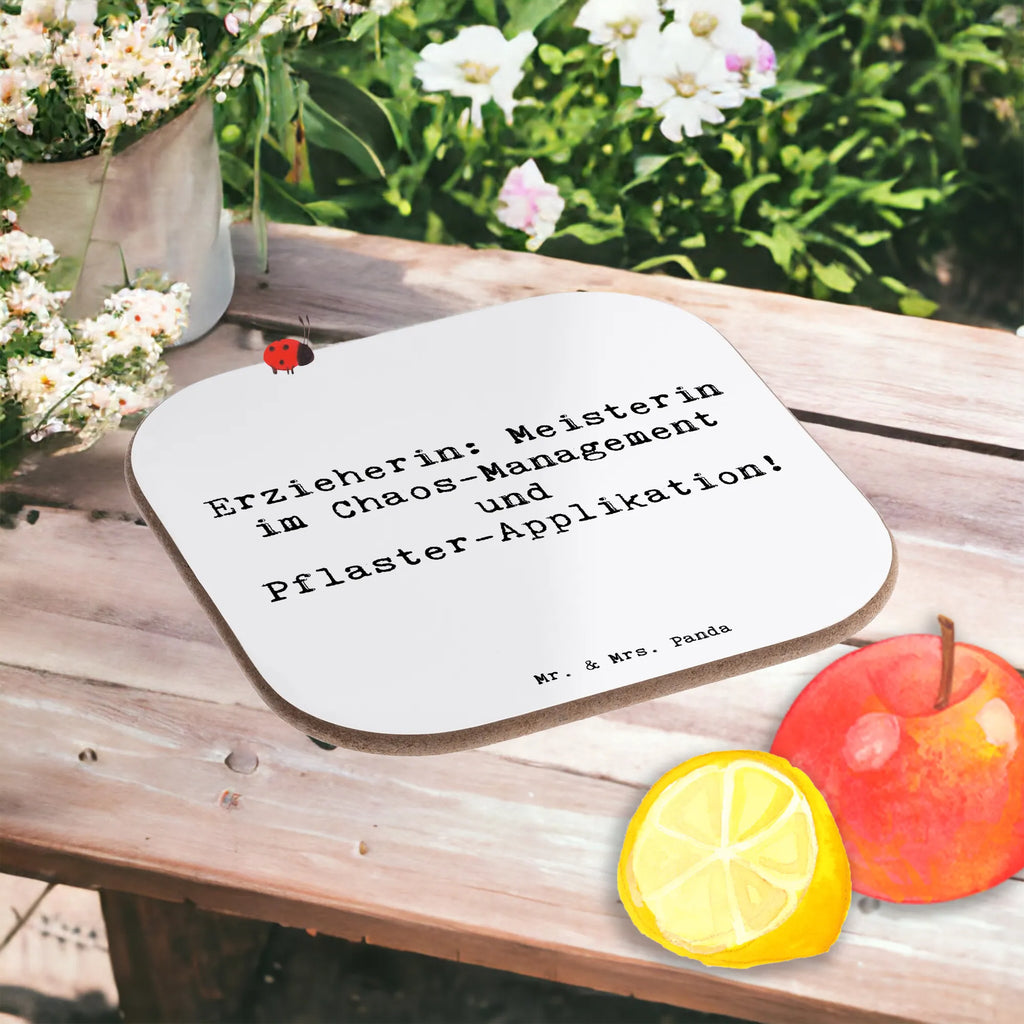 Erzieherin: Meisterin
im Chaos-Management
und
Pflaster-Applikation!
Mr. & Mrs. Panda